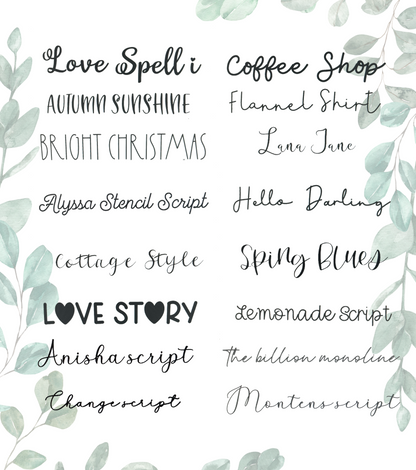 Love Spell i
AUTUMN SUNSHINE
BRIGHT CHRISTMAS
Alyssa Stencil Script
Cottage Style
LOVE STORY
Anisha script
Change script
Coffee Shop
Flannel Shirt
Luna Jane
Hello Darling
Sping Blues
Lemonade Script
The billion monoline
Montens script